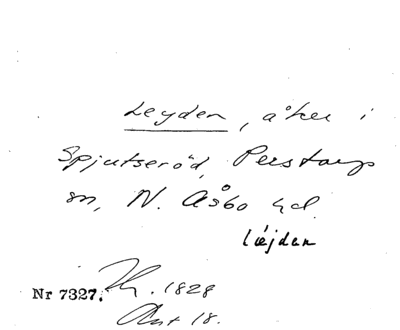 Leyden, åker i
Spjutseröd, Perstorp
sn, N. Åsbo hd.
läjden
Nr 7327. Kt. 1828
Akt 18.